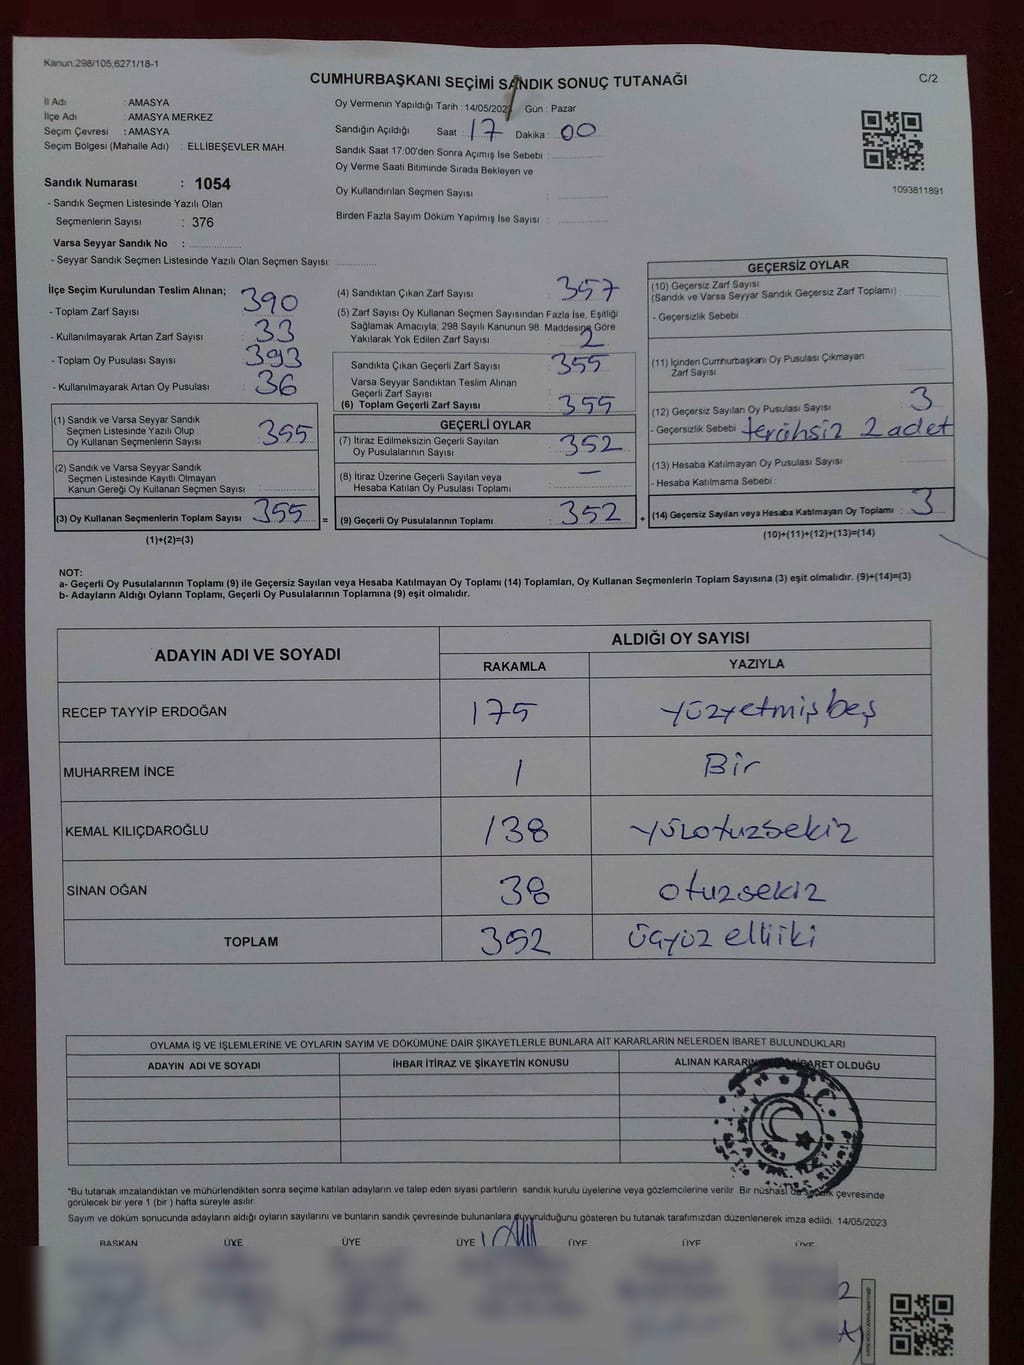 Kanun,298/105,6271/18-1
CUMHURBAŞKANI SEÇİMİ SANDIK SONUÇ TUTANAĞI
C/2
İl Adı : AMASYA
İlçe Adı : AMASYA MERKEZ
Seçim Çevresi : AMASYA
Seçim Bölgesi (Mahalle Adı) : ELLİBEŞEVLER MAH.
Sandık Numarası : 1054
- Sandık Seçmen Listesinde Yazılı Olan
Seçmenlerin Sayısı : 376
Varsa Seyyar Sandık No :
- Seyyar Sandık Seçmen Listesinde Yazılı Olan Seçmen Sayısı:
Oy Vermenin Yapıldığı Tarih : 14/05/202 Gün : Pazar
Sandığın Açıldığı Saat : 17 Dakika : 00
Sandık Saat 17:00'den Sonra Açımış İse Sebebi :
Oy Verme Saati Bitiminde Sırada Bekleyen ve
Oy Kullandırılan Seçmen Sayısı :
Birden Fazla Sayım Döküm Yapılmış İse Sayısı :
1093811891
İlçe Seçim Kurulundan Teslim Alınan;
- Toplam Zarf Sayısı : 390
- Kullanılmayarak Artan Zarf Sayısı : 33
- Toplam Oy Pusulası Sayısı : 393
- Kullanılmayarak Artan Oy Pusulası : 36
(1) Sandık ve Varsa Seyyar Sandık
Seçmen Listesinde Yazılı Olup
Oy Kullanan Seçmenlerin Sayısı : 355
(2) Sandık ve Varsa Seyyar Sandık
Seçmen Listesinde Kayıtlı Olmayan
Kanun Gereği Oy Kullanan Seçmen Sayısı :
(3) Oy Kullanan Seçmenlerin Toplam Sayısı : 355
(1)+(2)=(3)
=
(4) Sandıktan Çıkan Zarf Sayısı : 357
(5) Zarf Sayısı Oy Kullanan Seçmen Sayısından Fazla İse, Eşitliği
Sağlamak Amacıyla; 298 Sayılı Kanunun 98. Maddesine Göre
Yakılarak Yok Edilen Zarf Sayısı : 2
Sandıkta Çıkan Geçerli Zarf Sayısı : 355
Varsa Seyyar Sandıktan Teslim Alınan
Geçerli Zarf Sayısı :
(6) Toplam Geçerli Zarf Sayısı : 355
GEÇERLİ OYLAR
(7) İtiraz Edilmeksizin Geçerli Sayılan
Oy Pusulalarının Sayısı : 352
(8) İtiraz Üzerine Geçerli Sayılan veya
Hesaba Katılan Oy Pusulası Toplamı : —
(9) Geçerli Oy Pusulalarının Toplamı : 352
+
GEÇERSİZ OYLAR
(10) Geçersiz Zarf Sayısı
(Sandık ve Varsa Seyyar Sandık Geçersiz Zarf Toplamı) :
- Geçersizlik Sebebi :
(11) İçinden Cumhurbaşkanı Oy Pusulası Çıkmayan
Zarf Sayısı :
(12) Geçersiz Sayılan Oy Pusulası Sayısı : 3
- Geçersizlik Sebebi : tercihsiz 2 adet
(13) Hesaba Katılmayan Oy Pusulası Sayısı :
- Hesaba Katılmama Sebebi :
(14) Geçersiz Sayılan veya Hesaba Katılmayan Oy Toplamı : 3
(10)+(11)+(12)+(13)=(14)
NOT:
a- Geçerli Oy Pusulalarının Toplamı (9) ile Geçersiz Sayılan veya Hesaba Katılmayan Oy Toplamı (14) Toplamları, Oy Kullanan Seçmenlerin Toplam Sayısına (3) eşit olmalıdır. (9)+(14)=(3)
b- Adayların Aldığı Oyların Toplamı, Geçerli Oy Pusulalarının Toplamına (9) eşit olmalıdır.
ADAYIN ADI VE SOYADI
ALDIĞI OY SAYISI
RAKAMLA YAZIYLA
RECEP TAYYİP ERDOĞAN 175 yüzyetmişbeş
MUHARREM İNCE 1 Bir
KEMAL KILIÇDAROĞLU 138 yüzotuzsekiz
SİNAN OĞAN 38 otuzsekiz
TOPLAM 352 üçyüz elliiki
OYLAMA İŞ VE İŞLEMLERİNE VE OYLARIN SAYIM VE DÖKÜMÜNE DAİR ŞİKAYETLERLE BUNLARA AİT KARARLARIN NELERDEN İBARET BULUNDUKLARI
ADAYIN ADI VE SOYADI İHBAR İTİRAZ VE ŞİKAYETİN KONUSU ALINAN KARARIN İBARET OLDUĞU
*Bu tutanak imzalandıktan ve mühürlendikten sonra seçime katılan adayların ve talep eden siyasi partilerin sandık kurulu üyelerine veya gözlemcilerine verilir. Bir nüshası da sandık çevresinde
görülecek bir yere 1 (bir ) hafta süreyle asılır.
Sayım ve döküm sonucunda adayların aldığı oyların sayılarını ve bunların sandık çevresinde bulunanlara duyurulduğunu gösteren bu tutanak tarafımızdan düzenlenerek imza edildi. 14/05/2023
BAŞKAN ÜYE ÜYE ÜYE ÜYE ÜYE ÜYE